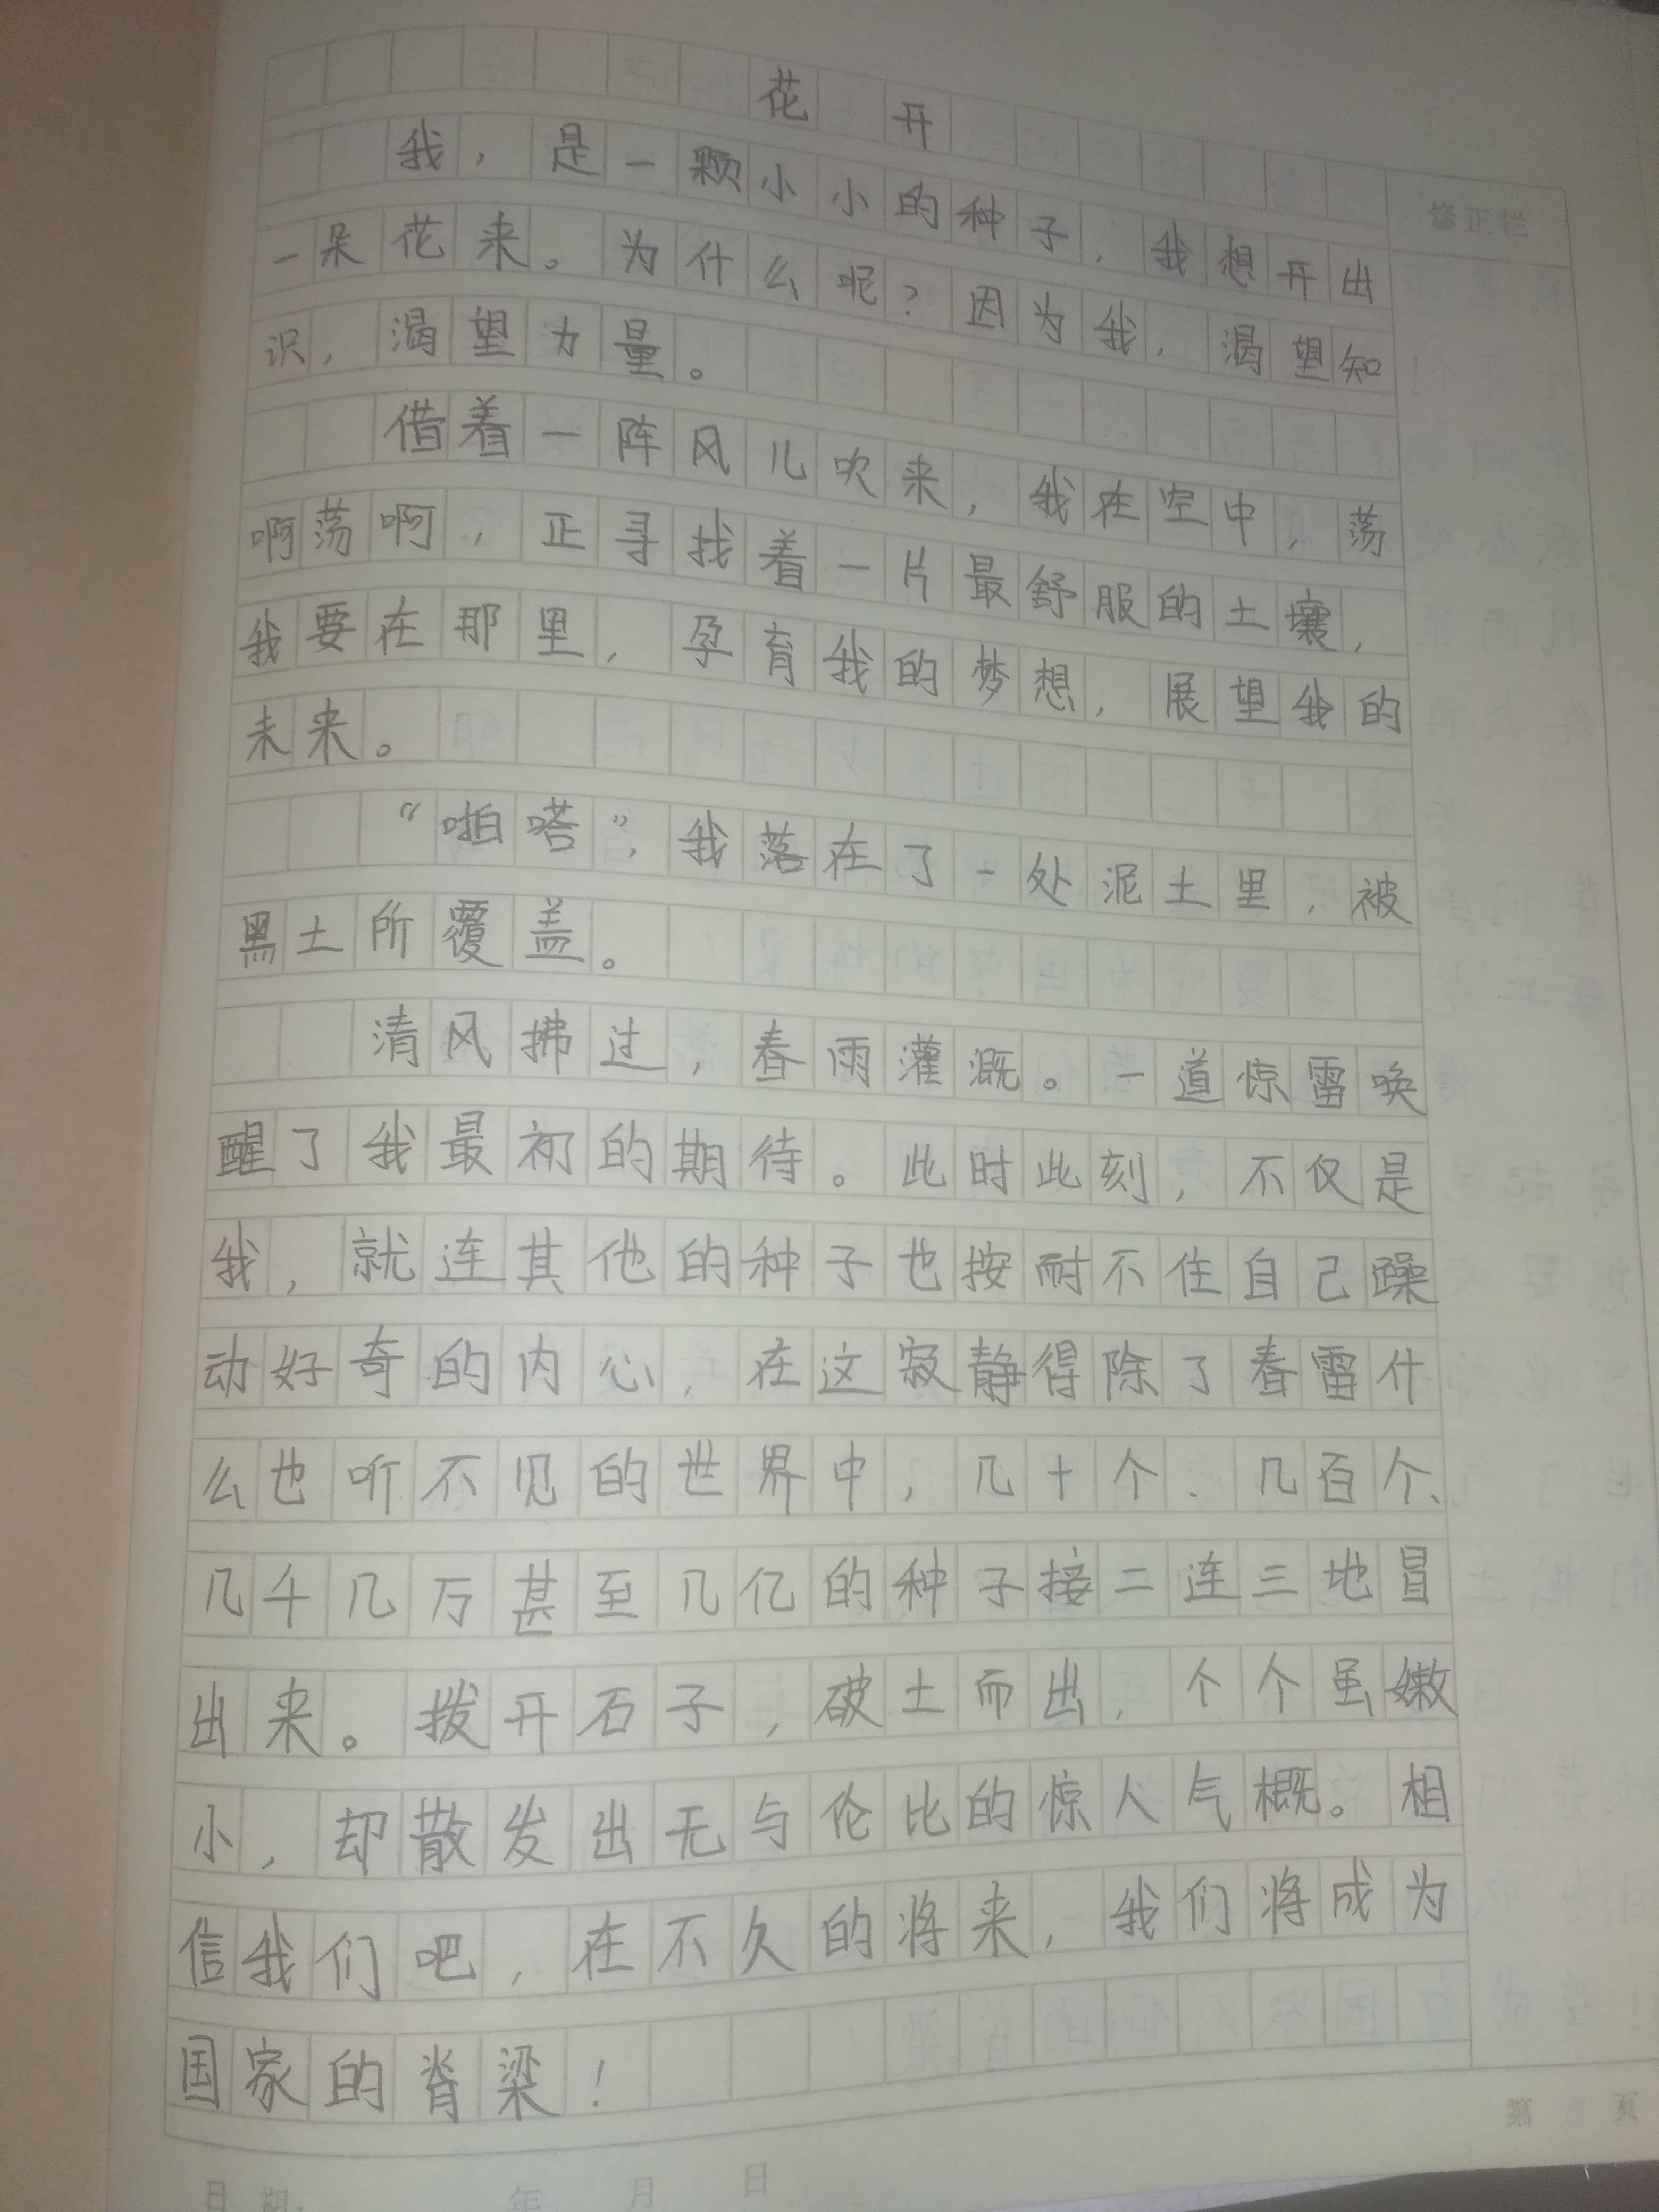 花开
我，是一颗小小的种子，我想开出
修正栏
一朵花来。为什么呢？因为我，渴望知
识，渴望力量。
借着一阵风儿吹来，我在空中，荡
啊荡啊，正寻找着一片最舒服的土壤，
我要在那里，孕育我的梦想，展望我的
未来。
“啪嗒”，我落在了一处泥土里，被
黑土所覆盖。
清风拂过，春雨灌溉。一道惊雷唤
醒了我最初的期待。此时此刻，不仅是
我，就连其他的种子也按耐不住自己躁
动好奇的内心，在这寂静得除了春雷什
么也听不见的世界中，几十个、几百个、
几千几万甚至几亿的种子接二连三地冒
出来。拨开石子，破土而出，个个虽嫩
小，却散发出无与伦比的惊人气概。相
信我们吧，在不久的将来，我们将成为
国家的脊梁！
第 页
日期： 年 月 日